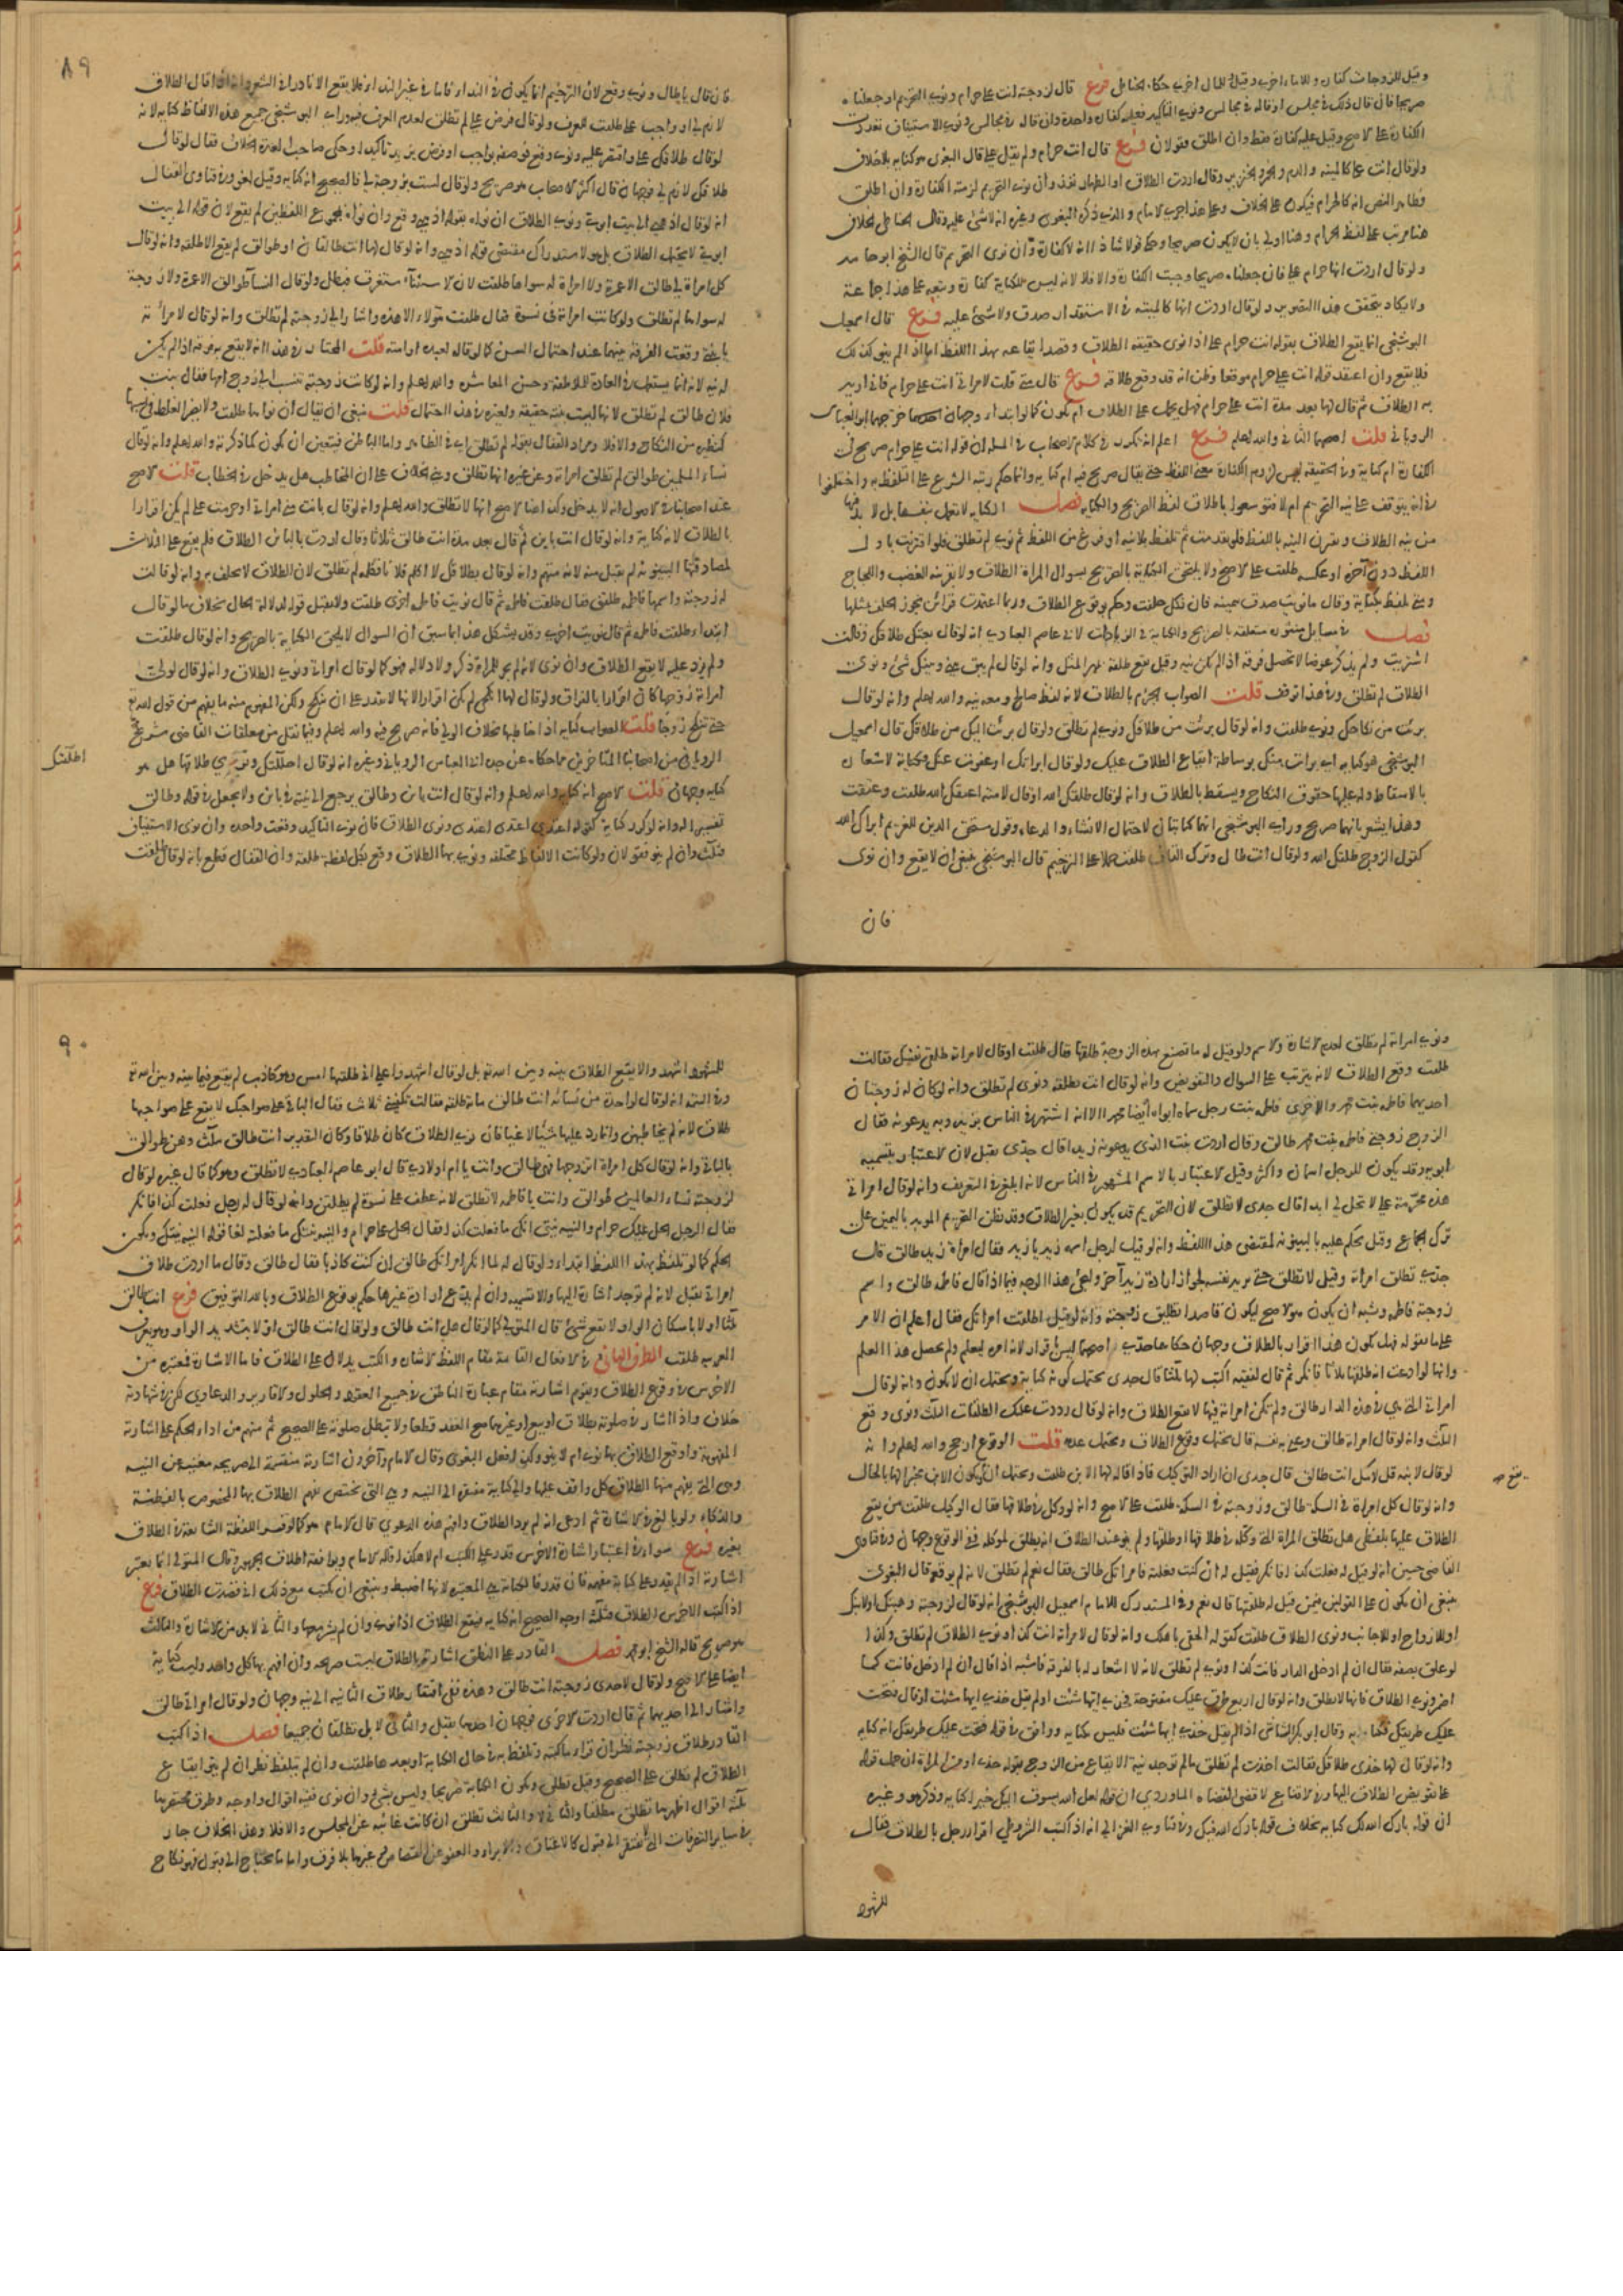 وقيل للزوجات كفارة وللاماء اخرى وقيل للمال اخرى حكاه الحناطي فرع قال لزوجته انت علي حرام ونوى التحريم او جعلناه
صريحا فان قال ذلك في مجلس او قاله في مجالس ونوى التاكيد فعليه كفارة واحدة وان قاله في مجالس ونوى الاستيناف تعددت
الكفارة على الاصح وقيل عليه كفارة فقط وان اطلق فقولان فرع قال انت حرام ولم يقل علي قال البغوي هو كناية بلا خلاف
ولو قال انت علي كالميتة والدم والخمر والخنزير وقال اردت الطلاق او الظهار نفذ وان نوى التحريم لزمته الكفارة وان اطلق
فظاهر النص انه كالحرام فيكون على الخلاف وعلى هذا جرى الامام والذي ذكره البغوي وغيره انه لا شئ عليه وقال الحناطي الخلاف
هنا مرتب على لفظ الحرام وهنا اولى بان لا يكون صريحا وحكي قولا شاذا انه لا كفارة وان نوى التحريم قال الشيخ ابو حامد
ولو قال اردت انها حرام علي فان جعلناه صريحا وجبت الكفارة والا فلا لانه ليس للكناية كفارة وتبعه على هذا جماعة
ولا يكاد يتحقق هذا التصوير ولو قال اردت انها كالميتة في الاستقذار صدق ولا شئ عليه فرع قال اسمعيل
البوشنجي انما يقع الطلاق بقوله انت حرام علي اذا نوى حقيقة الطلاق وقصد ايقاعه بهذا اللفظ اما اذا لم ينو كذلك
فلا يقع وان اعتقد قوله انت علي حرام موقعا وظن انه قد وقع طلاقه فرع قال متى قلت لامراتي انت علي حرام فاني اريد
به الطلاق ثم قال لها بعد مدة انت علي حرام فهل يحمل على الطلاق ام يكون كما لو ابتدا به وجهان خرجهما ابو العباس
الروياني قلت اصحهما الثاني والله اعلم فرع اعلم انه تكرر في كلام الاصحاب في المسلة ان قوله انت علي حرام صريح في
الكفارة ام كناية وفي الحقيقة ليس لزوم الكفارة معنى اللفظ حتى يقال صريح فيه ام كناية وانما حكم رتبه الشرع على التلفظ به واختلفوا
في انه يتوقف على نية التحريم ام لا فتوسعوا باطلاق لفظ الصريح والكناية فصل الكناية لا تعمل بنفسها بل لا بد فيها
من نية الطلاق ويقرن النية باللفظ فلو تقدمت ثم تلفظ بلا نية او فرغ من اللفظ ثم نوى لم تطلق فلو اقترنت باول
اللفظ دون آخره او عكسه طلقت على الاصح ولا يلتحق الكناية بالصريح بسوال المراة الطلاق ولا بقرينة الغضب واللجاج
ومتى تلفظ بكناية وقال ما نويت صدق بيمينه فان نكل حلفت وحكم بوقوع الطلاق وربما اعتمدت قرائن يجوز الحلف بمثلها
فصل في مسايل منثورة متعلقة بالصريح والكناية في الزيادات لابي عاصم العبادي انه لو قال بعتك طلاقك وقالت
اشتريت ولم يذكر عوضا لا تحصل فرقة اذا لم تكن نية وقيل يقع طلقة بمهر المثل وانه لو قال لم يبق بيني وبينك شئ ونوى
الطلاق لم تطلق وفي هذا توقف قلت الصواب الجزم بالطلاق لانه لفظ صالح ومعه نية والله اعلم وانه لو قال
برئت من نكاحك ونوى طلقت وانه لو قال برئت من طلاقك ونوى لم تطلق ولو قال برئت اليك من طلاقك قال اسمعيل
البوشنجي هو كناية اي برات منك بوساطة ايقاع الطلاق عليك ولو قال ابراتك او عفوت عنك فكناية لاشعاره
بالاسقاط وله عليها حقوق النكاح ويسقط بالطلاق وانه لو قال طلقك الله او قال لامته اعتقك الله طلقت وعتقت
وهذا يشعر بانهما صريح وراى البوشنجي انهما كنايتان لاحتمال الانشاء والدعاء وقول مستحق الدين للغريم ابراك الله
كقول الزوج طلقك الله ولو قال انت طال وترك القاف طلقت حملا على الترخيم قال البوشنجي ينبغي ان لا يقع وان نوى
فان
٨٩
فان قال يا طال ونوى وقع لان الترخيم انما يكون في النداء فاما في غير النداء فلا يقع الا نادرا في الشعر وانه اذا قال الطلاق
لازم لي او واجب علي طلقت للعرف ولو قال فرض علي لم تطلق لعدم العرف فيه وراى البوشنجي جميع هذه الالفاظ كناية لانه
لو قال طلاقك علي واقتصر عليه ونوى وقع فوصفه بواجب او فرض يزيده تاكيدا وحكى صاحب العدة الخلاف فقال لو قال
طلاقك لازم لي فوجهان قال اكثر الاصحاب هو صريح ولو قال لست بزوجة لي فالصحيح انه كناية وقيل لغو وفي فتاوى القفال
انه لو قال اذهبي الى بيت ابوي ونوى الطلاق ان نواه بقوله اذهبي وقع وان نواه بمجموع اللفظين لم يقع لان قوله الى بيت
ابوي لا يحتمل الطلاق بل هو لاستدراك مقتضى قوله اذهبي وانه لو قال لها انت طالقان او طوالق لم يقع الا طلقة وانه لو قال
كل امراة لي طالق الا عمرة ولا امراة له سواها طلقت لان الاستثناء مستغرق فبطل ولو قال النساء طوالق الا عمرة ولا زوجة
له سواها لم تطلق ولو كانت امراته في نسوة فقال طلقت هؤلاء الا هذه واشار الى زوجته لم تطلق وانه لو قال لامرأته
يا بنتي وقعت الفرقة بينهما عند احتمال السن كما لو قاله لعبده او امته قلت المختار في هذا انه لا يقع به فرقة اذا لم يكن
له نية لانه انما يستعمل في العادة للملاطفة وحسن المعاشرة والله اعلم وانه لو كانت زوجته تنسب الى زوج امها فقال بنت
فلان طالق لم تطلق لانها ليست بنته حقيقة ولغيره في هذا احتمال قلت ينبغي ان يقال ان نواها طلقت ولا يضر الغلط في نسبها
كنظيره من النكاح والا فلا ومراد القفال بقوله لم تطلق اي في الظاهر واما الباطن فيتعين ان يكون كما ذكرته والله اعلم وانه لو قال
نساء المسلمين طوالق لم تطلق امراته وعن غيره انها تطلق وبنى الخلاف على ان المخاطب هل يدخل في الخطاب قلت الاصح
عند اصحابنا في الاصول انه لا يدخل وكذا هنا الاصح انها لا تطلق والله اعلم وانه لو قال بانت مني امراتي او حرمت علي لم يكن اقرارا
بالطلاق لانه كناية وانه لو قال انت باين ثم قال بعد مدة انت طالق ثلاثا وقال اردت بالباين الطلاق فلم يقع علي الثلاث
لمصادفتها البينونة لم يقبل منه لانه متهم وانه لو قال بطلاقك لا اكلم فلانا فكلمه لم تطلق لان الطلاق لا يحلف به وانه لو قالت
له زوجته واسمها فاطمة طلقني فقال طلقت فاطمة ثم قال نويت فاطمة اخرى طلقت ولا يقبل قوله لدلالة الحال بخلاف ما لو قال
ابتداء طلقت فاطمة ثم قال نويت اخرى وقد يشكل هذا بما سبق ان السوال لا يلحق الكناية بالصريح وانه لو قال طلقت
ولم يزد عليه لا يقع الطلاق وان نوى لانه لم يجر للمراة ذكر ولا دلالة فهو كما لو قال امراتي ونوى الطلاق وانه لو قال لولي
امراته زوجها كان اقرارا بالفراق ولو قال لها انكحي لم يكن اقرارا لانها لا تقدر على ان تنكح ولكن المفهوم منه ما يفهم من قول الله تع
حتى تنكح زوجا قلت الصواب كناية اذا خاطبها بخلاف الولي فانه صريح فيه والله اعلم وفيما نقل من معلقات القاضي شريح
الروياني من اصحابنا المتاخرين مما حكاه عن جده ابي العباس الروياني وغيره انه لو قال احللتك ونوى طلاقها هل هو
اطلقتك
كناية وجهان قلت الاصح انه كناية والله اعلم وانه لو قال انت باين وطالق يرجع الى نيته في باين ولا يجعل قوله وطالق
تفسيرا له وانه لو كرر كناية كقوله اعتدي اعتدي اعتدي ونوى الطلاق فان نوى التاكيد وقعت واحدة وان نوى الاستيناف
فثلث وان لم ينو فقولان ولو كانت الالفاظ مختلفة ونوى بها الطلاق وقع بكل لفظة طلقة وان القفال قطع بانه لو قال طلقت
ونوى امراته لم تطلق لعدم الاشارة والاسم ولو قيل له ما تصنع بهذه الزوجة طلقها فقال طلقت او قال لامراته طلقي نفسك فقالت
طلقت وقع الطلاق لانه يترتب على السوال والتفويض وانه لو قال انت بطلقة ونوى لم تطلق وانه لو كان له زوجتان
احديهما فاطمة بنت محمد والاخرى فاطمة بنت رجل سماه ابواه ايضا محمدا الا انه اشتهر في الناس بزيد وبه يدعونه فقال
الزوج زوجتي فاطمة بنت محمد طالق وقال اردت بنت الذي يدعونه زيدا قال جدي يقبل لان الاعتبار بتسمية
ابويه وقد يكون للرجل اسمان واكثر وقيل الاعتبار بالاسم المشهور في الناس لانه ابلغ في التعريف وانه لو قال امراتي
هذه محرمة علي لا تحل لي ابدا قال جدي لا تطلق لان التحريم قد يكون بغير الطلاق وقد يظن التحريم المؤبد باليمين على
ترك الجماع وقيل يحكم عليه بالبينونة لمقتضى هذا اللفظ وانه لو قيل لرجل اسمه زيد يا زيد فقال امراة زيد طالق قال
جدي تطلق امراته وقيل لا تطلق حتى يريد نفسه لجواز ارادة زيد آخر ولجئ هذا الوجه فيما اذا قال فاطمة طالق واسم
زوجته فاطمة ويشبه ان يكون هو الاصح ليكون قاصدا تطليق زوجته وانه لو قيل اطلقت امراتك فقال اعلم ان الامر
على ما تقوله فهل يكون هذا اقرارا بالطلاق وجهان حكاهما جدي اصحهما ليس باقرار لانه امره ليعلم ولم يحصل هذا العلم
وانها لو ادعت انه طلقها ثلاثا فانكر ثم قال لفقيه اكتب لها ثلثا قال جدي يحتمل كونه كناية ويحتمل ان لا يكون وانه لو قال
امراتي التي هي في هذه الدار طالق ولم تكن امراته فيها لا يقع الطلاق وانه لو قال رددت عليك الطلقات الثلث ونوى وقع
الثلث وانه لو قال امراته طالق وعنى نفسه قال يحتمل وقوع الطلاق ويحتمل عدمه قلت الوقوع ارجح والله اعلم وانه
لو قال لابنه قل لامك انت طالق قال جدي ان اراد التوكيل فاذا قاله لها الابن طلقت ويحتمل ان يكون الابن مخبرا لها بالحال
يقع صح
وانه لو قال كل امراة في السكة طالق وزوجته في السكة طلقت على الاصح وانه لو وكل في طلاقها فقال الوكيل طلقت من يقع
الطلاق عليها بلفظي هل تطلق المراة التي وكله في طلاقها او طلقها ولم ينو عند الطلاق انه يطلق لموكله ففي الوقوع وجهان وفي فتاوى
القاضي حسين انه لو قيل له فعلت كذا فانكر فقيل له ان كنت فعلته فامراتك طالق فقال نعم لم تطلق لانه لم يوقعه قال البغوي
ينبغي ان يكون على القولين فيمن قيل له طلقتها قال نعم وفي المستدرك للامام اسمعيل البوشنجي انه لو قال لزوجته وهبتك لاهلك
او للازواج او للاجانب ونوى الطلاق طلقت كقوله الحقي باهلك وانه لو قال لامراته انت كذا ونوى الطلاق لم تطلق وكذا
لو علق بصفة فقال ان لم ادخل الدار فانت كذا ونوى لم تطلق لانه لا اشعار له بالفرقة فاشبه اذا قال ان لم ادخل فانت كما
اضمر ونوى الطلاق فانها لا تطلق وانه لو قال اربع طرق عليك مفتوحة فخذي ايها شئت او لم يقل خذي ايها شئت او قال فتحت
عليك طريقك فكناية وقال ابو بكر الشاشي اذا لم يقل خذي ايها شئت فليس بكناية ووافق في قوله فتحت عليك طريقك انه كناية
وانه لو قال لها خذي طلاقك فقالت اخذت لم تطلق ما لم توجد نية الايقاع من الزوج بقوله خذي او من المراة ان حمل قوله
على تفويض الطلاق اليها وفي الاقناع لاقضى القضاة الماوردي ان قوله لعل الله يسوق اليك خيرا كناية وذكر هو وغيره
ان قوله بارك الله لك كناية بخلاف قوله بارك الله فيك وفي فتاوى الغزالي انه اذا كتب الشروطي اقرار رجل بالطلاق فقال
للشهود
٩٠
للشهود اشهد والا يقع الطلاق بينه وبين الله تع بل لو قال اشهدوا علي اني طلقتها امس وهو كاذب لم يقع فيما بينه وبين الله تع
وفي التتمة انه لو قال لواحدة من نسائه انت طالق ماية طلقة فقالت تكفيني ثلاث فقال الباقي على صواحبك لا يقع على صواحبها
طلاق لانه لم يخاطبهن وانما رد عليها شيئا لاغيا فان نوى الطلاق كان طلاقا وكان التقدير انت طالق بثلث وهن طوالق
بالباقي وانه لو قال كل امراة اتزوجها فهي طالق وانت يا ام اولادي قال ابو عاصم العبادي لا تطلق وهو كما قال غيره لو قال
لزوجته نساء العالمين طوالق وانت يا فاطمة لا تطلق لانه عطف على نسوة لم يطلقن وانه لو قال له رجل فعلت كذا فانكر
فقال الرجل الحل عليك حرام والنية نيتي انك ما فعلت كذا فقال الحل علي حرام والنية نيتك ما فعلته لغا قوله النية نيتك ويكون
الحكم كما لو تلفظ بهذا اللفظ ابتداء ولو قال له لما انكر امراتك طالق ان كنت كاذبا فقال طالق وقال ما اردت طلاق
امراتي يقبل لانه لم توجد اشارة اليها ولا تسمية وان لم يدع ارادة غيرها حكم بوقوع الطلاق وبالله التوفيق فرع انت طالق
ثلثا او لا باسكان الواو لا يقع شئ قال المتولي كما لو قال هل انت طالق ولو قال انت طالق اولا بتشديد الواو وهو يعرف
العربية طلقت الطرف الثاني في الافعال القائمة مقام اللفظ الاشارة والكتب يدلان على الطلاق فاما الاشارة فمعتبرة من
الاخرس في وقوع الطلاق وتقوم اشارته مقام عبارة الناطق في جميع العقود والحلول والاقارير والدعاوي لكن في شهادته
خلاف واذا اشار في صلوته بطلاق او بيع او غيرهما صح العقد قطعا ولا تبطل صلوته على الصحيح ثم منهم من ادار الحكم على اشارته
المفهومة واوقع الطلاق بها نوى ام لم ينو وكذا فعل البغوي وقال الامام وآخرون اشارته منقسمة الى صريحة مغنية عن النية
وهي التي يفهم منها الطلاق كل واقف عليها والى كناية مفتقرة الى النية وهي التي يختص بفهم الطلاق بها المخصوص بالفطنة
والذكاء ولو بالغ في الاشارة ثم ادعى انه لم يرد الطلاق وافهم هذه الدعوى قال الامام هو كما لو فسر اللفظة الشايعة في الطلاق
بغيره فرع سواء في اعتبار اشارة الاخرس قدر على الكتب ام لا هكذا قاله الامام ويوافقه اطلاق الجمهور وقال المتولي انما يعتبر
اشارته اذا لم يقدر على كتابة مفهمة فان قدر فالكتابة هي المعتبرة لانها اضبط وينبغي ان يكتب مع ذلك اني قصدت الطلاق فرع
اذا كتب الاخرس الطلاق فثلثة اوجه الصحيح انه كناية فيقع الطلاق اذا نوى وان لم يشر معها والثاني لا بد من الاشارة والثالث
هو صريح قاله الشيخ ابو محمد فصل القادر على النطق اشارته بالطلاق ليست صريحة وان افهم بها كل واحد وليست كناية
ايضا على الاصح ولو قال لاحدى زوجتيه انت طالق وهذه ففي افتقار طلاق الثانية الى نية وجهان ولو قال امراتي طالق
واشار الى احديهما ثم قال اردت الاخرى فوجهان احدهما يقبل والثاني لا بل تطلقان جميعا فصل اذا كتب
القادر طلاق زوجته نظر ان قرا ما كتبه وتلفظ به في حال الكتابة او بعدها طلقت وان لم يتلفظ نظر ان لم ينو ايقاع
الطلاق لم تطلق على الصحيح وقيل تطلق وتكون الكتابة صريحا وليس بشئ وان نوى ففيه اقوال واوجه وطرق مختصرها
ثلثة اقوال اظهرها تطلق مطلقا والثاني لا والثالث تطلق ان كانت غايبة عن المجلس والا فلا وهذا الخلاف جار
في ساير التصرفات التي لا تفتقر الى قبول كالاعتاق والابراء والعفو عن القصاص وغيرها بلا فرق واما ما يحتاج الى قبول فهو نكاح